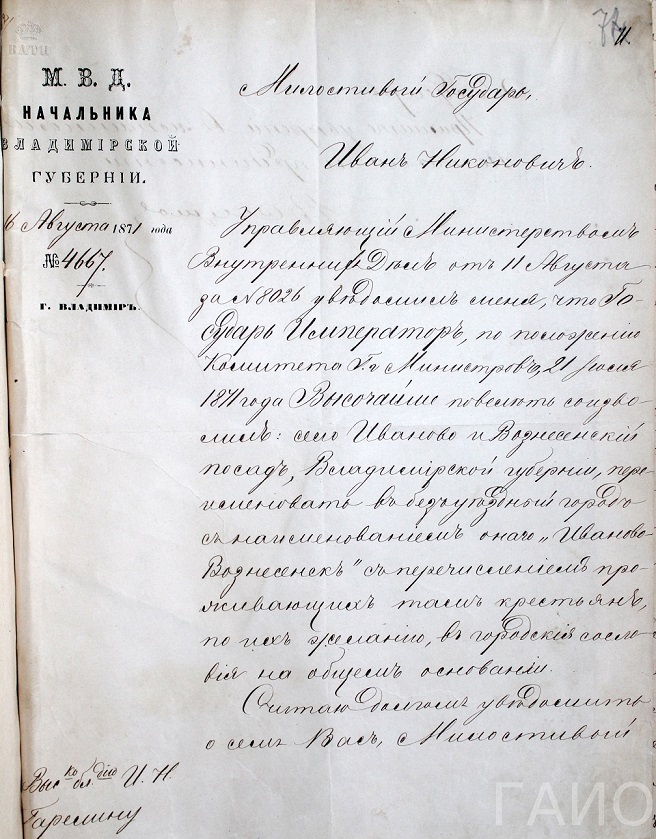 72
71.
М. В. Д.
НАЧАЛЬНИКА
ВЛАДИМІРСКОЙ
ГУБЕРНІИ.
16 Августа 1871 года
№ 4667.
Г. ВЛАДИМІРЪ.
Милостивый Государь,
Иванъ Никоновичъ.
Управляющій Министерствомъ
Внутреннихъ Дѣлъ отъ 11 Августа
за № 8026 увѣдомилъ меня, что Го-
сударь Императоръ, по положенію
Комитета Г.г. Министровъ, 21 Іюля
1871 года Высочайше повелѣть соизво-
лилъ: село Иваново и Вознесенскій
посадъ, Владимірской губерніи, пере-
именовать въ безъуѣздный городъ
съ наименованіемъ онаго „Иваново-
Вознесенскъ" съ перечисленіемъ про-
живающихъ тамъ крестьянъ,
по ихъ желанію, въ городскія сосло-
вія на общемъ основаніи.
Считаю долгомъ увѣдомить
о семъ Васъ, Милостивый
Выс ко бл. дію И. Н.
Гарелину
ГАИО